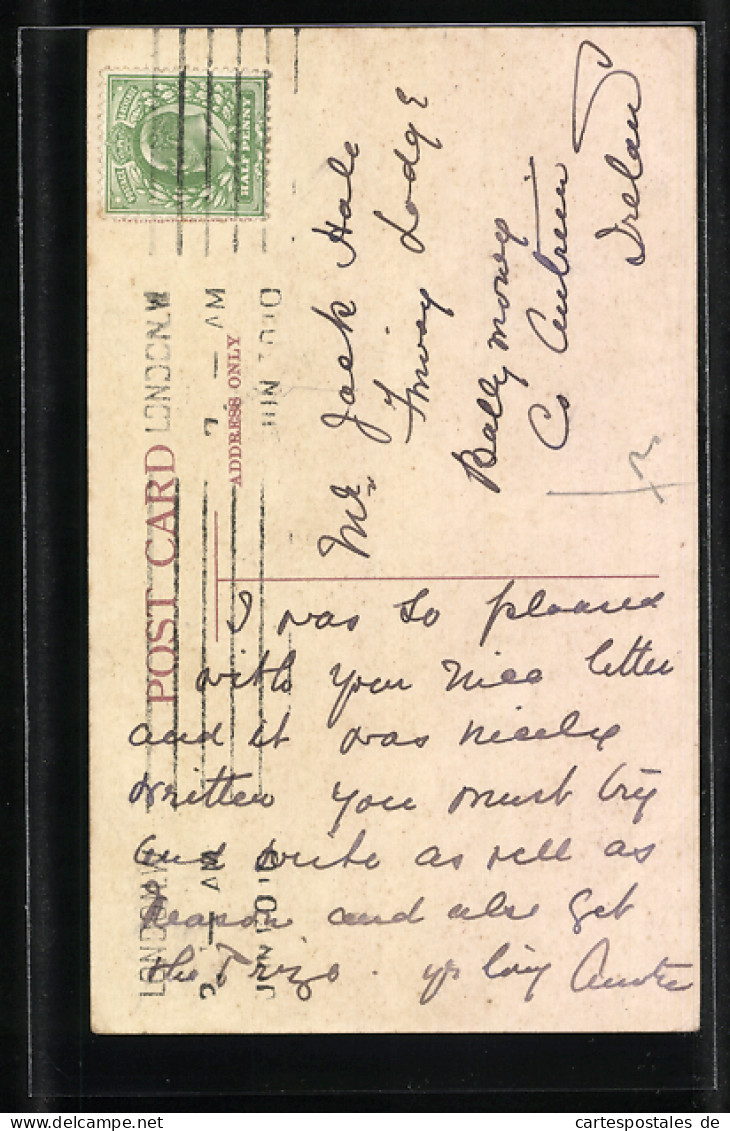 HALF PENNY
POST CARD
ADDRESS ONLY
LONDON.W
7 — AM
JUN 10 10
Mr. Jack Hale
Lodge
Ballymoney
Co Antrim
Ireland
I was so pleased
with your nice letter
and it was nicely
written you must try
and write as well as
and also get
the Prize. yr lovg Auntie
LONDON.W
AM
cartespostales.de